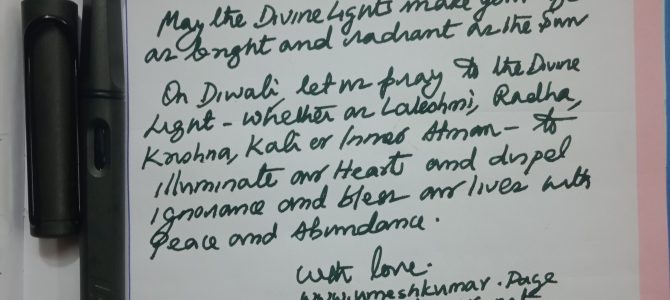 May the Divine Lights make your
as bright and radiant as the Sun
On Diwali, let us pray to the Divine
Light - whether as Lakshmi, Radha,
Krishna, Kali or Inner Atman - to
illuminate our Heart and dispel
ignorance and bless our lives with
Peace and Abundance.
with love.
www.umeshkumar.page